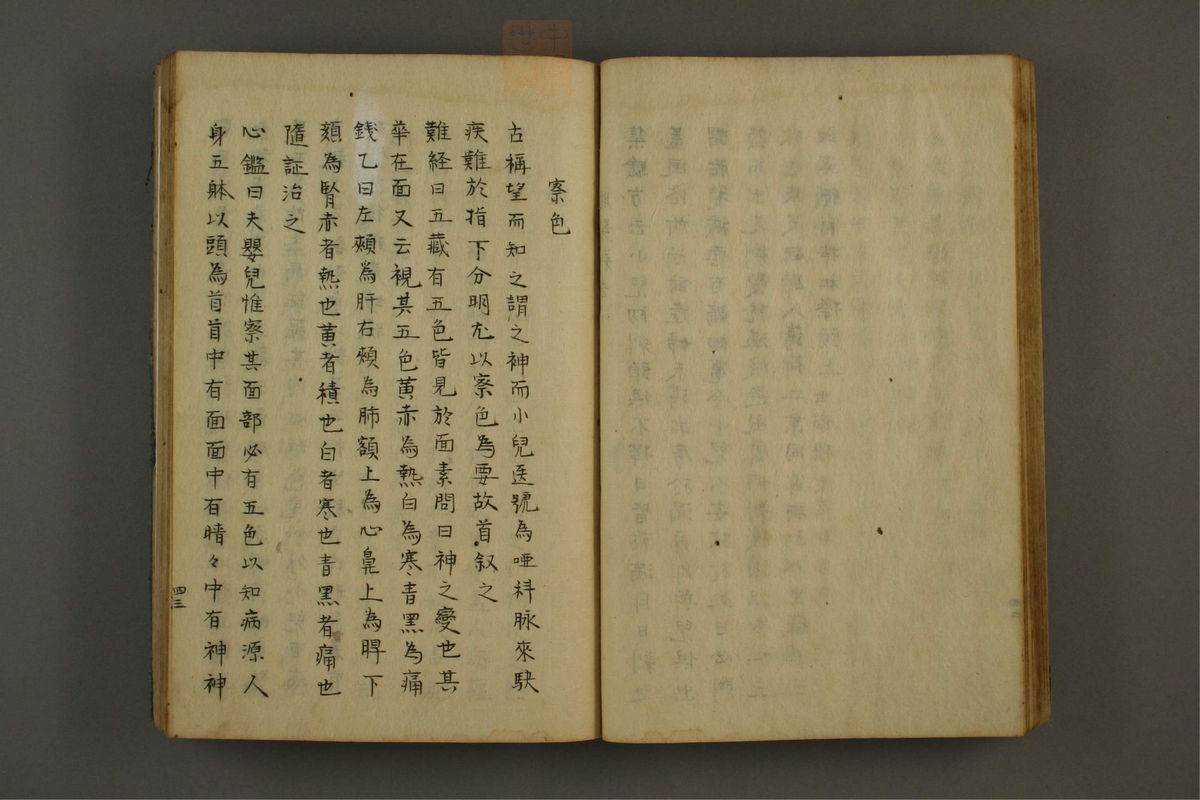 察色
古稱望而知之謂之神而小兒医號為啞科脉來駃
疾難於指下分明尤以察色為要故首叙之
難経曰五藏有五色皆見於面素問曰神之變也其
華在面又云視其五色黄赤為熱白為寒青黒為痛
錢乙曰左頰為肝右頰為肺額上為心鼻上為脾下
頦為腎赤者熱也黄者積也白者寒也青黒者痛也
隨証治之
心鑑曰夫嬰兒惟察其面部必有五色以知病源人
身五躰以頭為首首中有面面中有睛々中有神神
四三